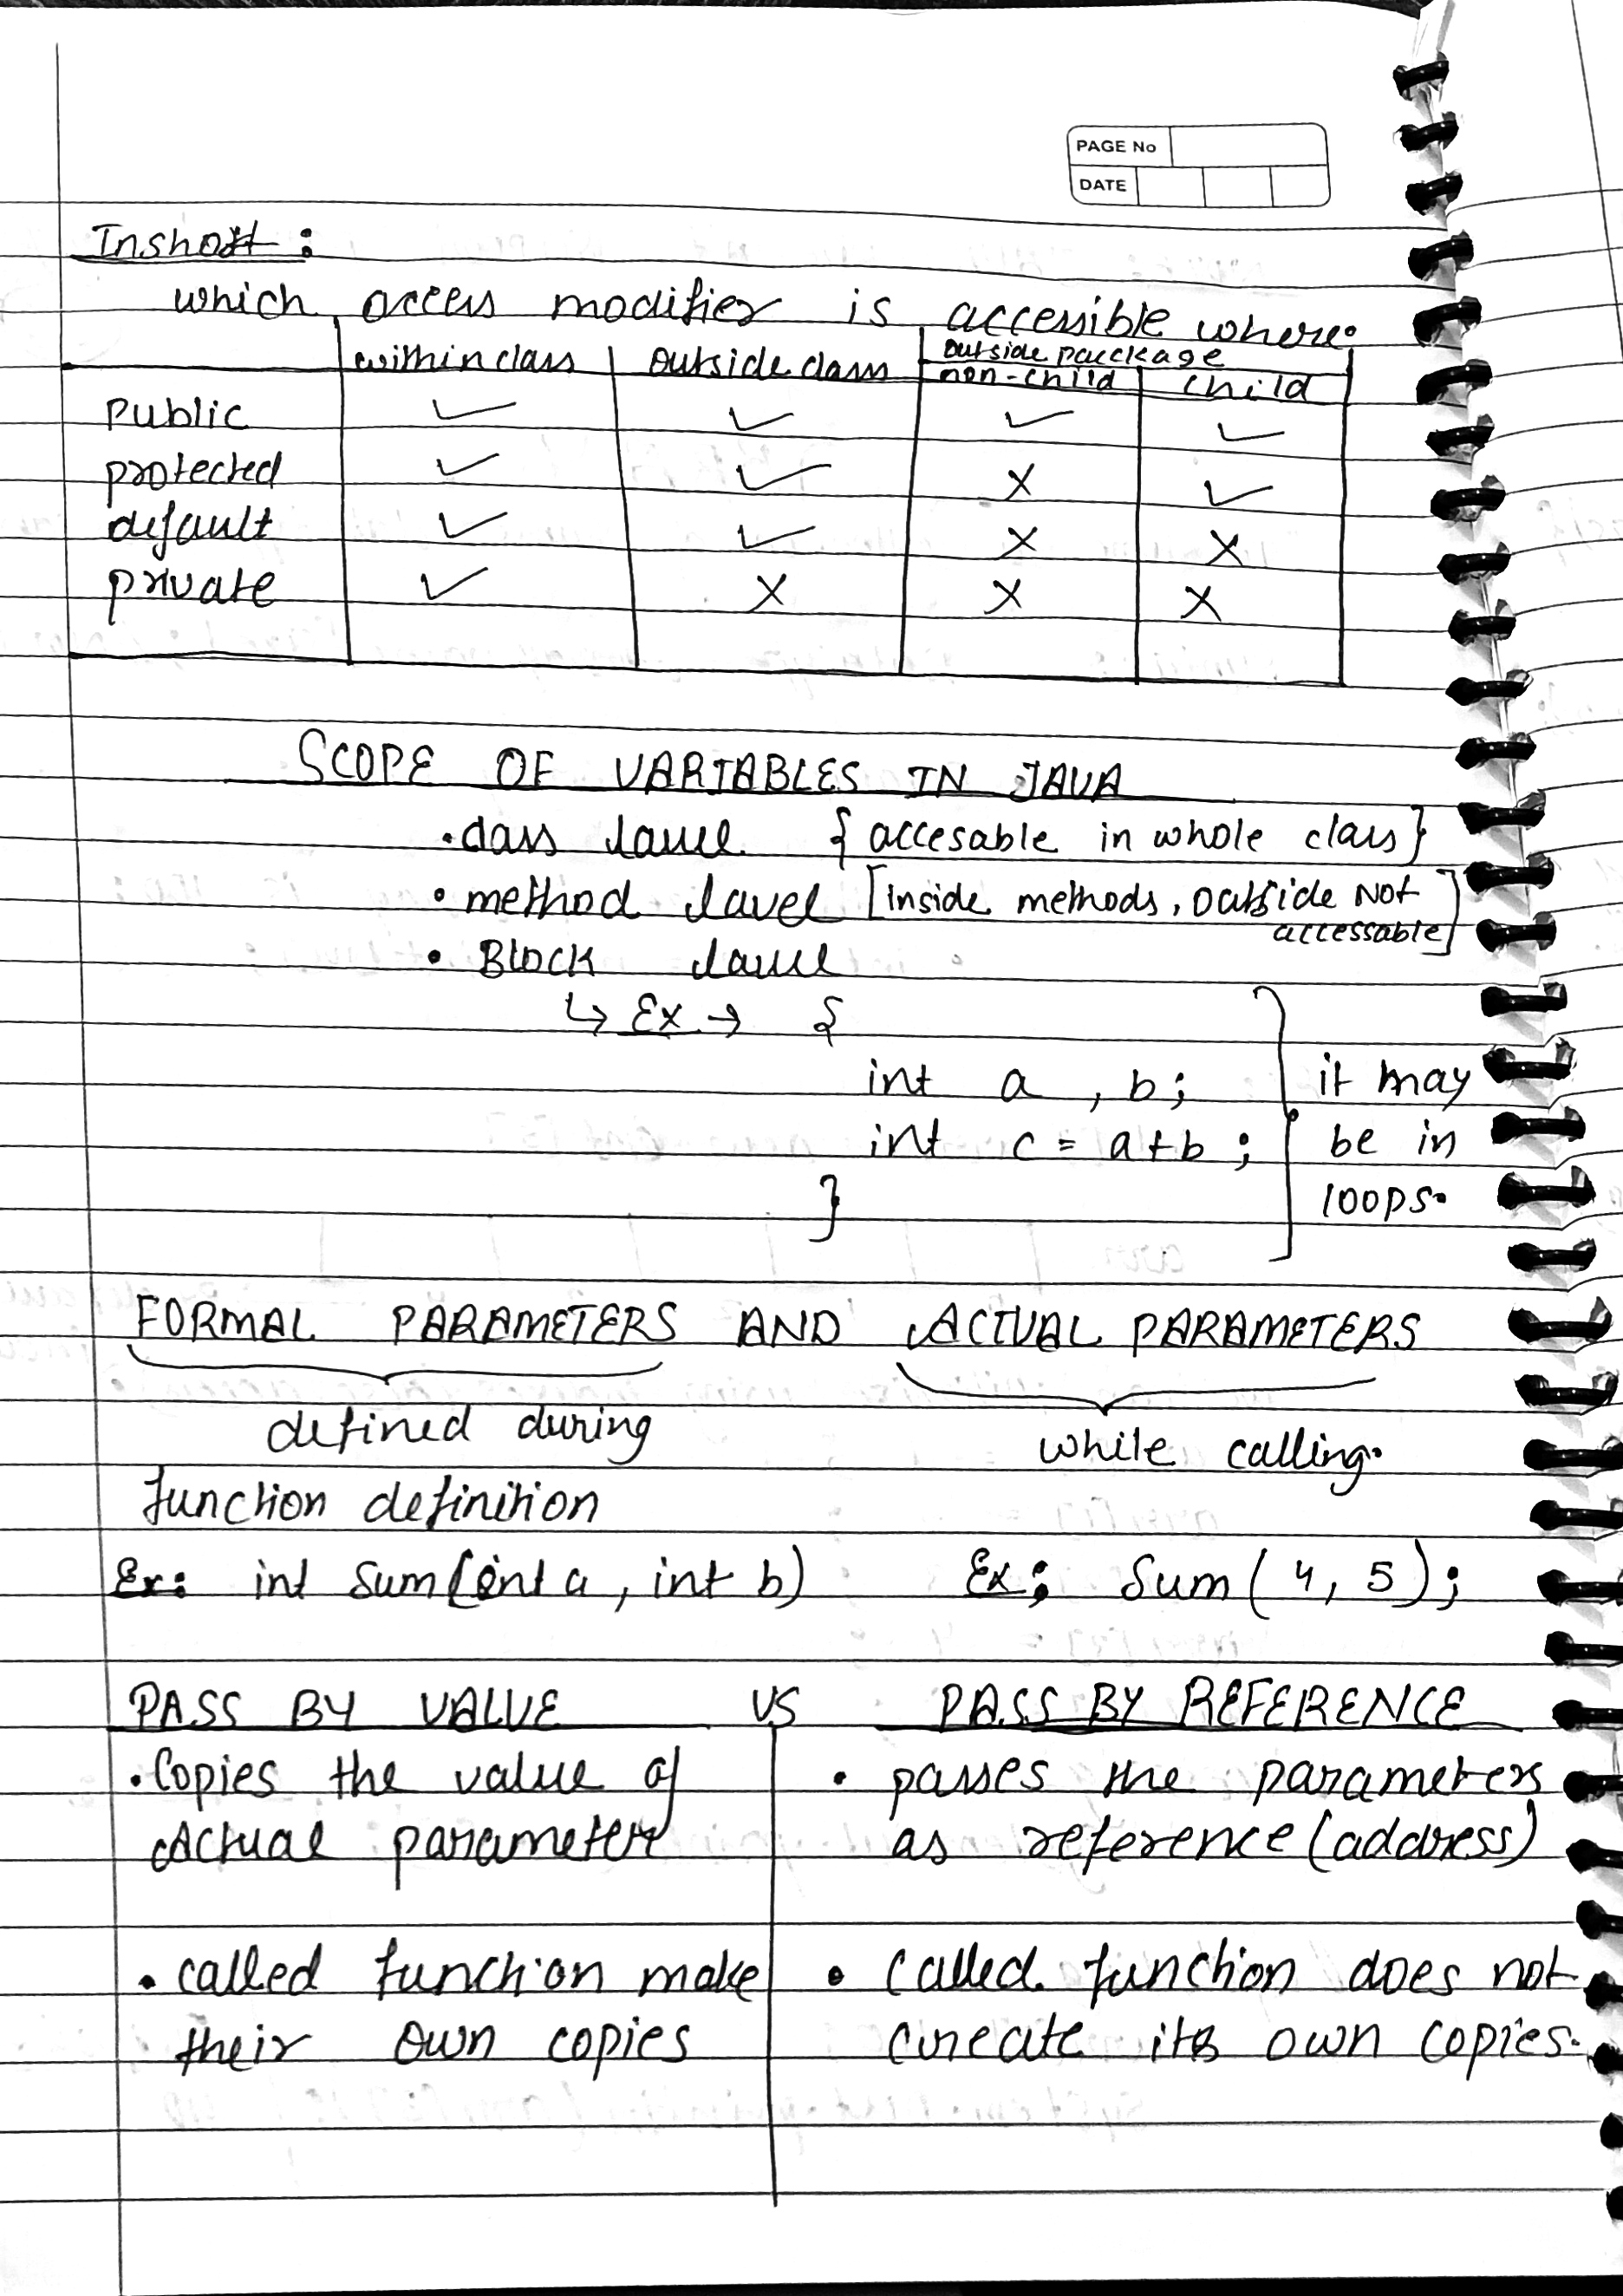 PAGE No
DATE
Inshort :
which access modifier is accessible where.
within class outside class outside package
non-child child
public ✓ ✓ ✓ ✓
protected ✓ ✓ × ✓
default ✓ ✓ × ×
private ✓ × × ×
SCOPE OF VARIABLES IN JAVA
• class lavel { accesable in whole class }
• method lavel [inside methods, outside Not
accessable]
• Block lavel
↳ Ex → {
int a , b ; it may
int c = a+b ; be in
} loops.
FORMAL PARAMETERS AND ACTUAL PARAMETERS
defined during while calling.
function definition
Ex: int sum(int a, int b) Ex: Sum( 4, 5 );
PASS BY VALUE VS PASS BY REFERENCE
• Copies the value of • passes the parameters
Actual parameter as reference (address)
• called function make • called function does not
their own copies create its own copies.